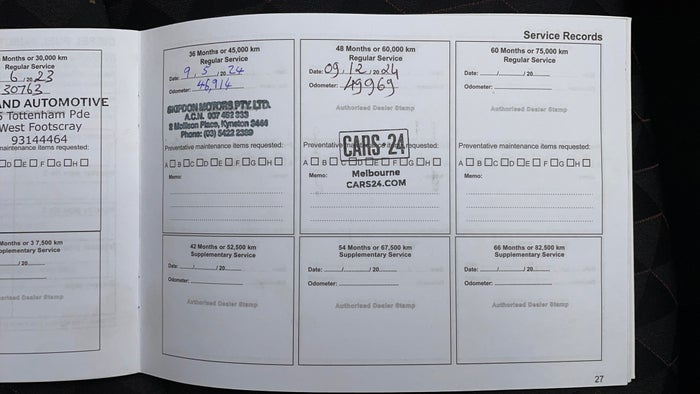 Service Records
Months or 30,000 km
Regular Service
6 /20 23
30763
AND AUTOMOTIVE
5 Tottenham Pde
West Footscray
93144464
maintenance items requested:
D E F G H
Months or 3 7,500 km
Supplementary Service
/20
Authorised Dealer Stamp
36 Months or 45,000 km
Regular Service
Date: 9 / 5 / 20 24
Odometer: 46,914
SKIPDON MOTORS PTY. LTD.
A.C.N. 007 462 333
2 Mollison Place, Kyneton 3444
Phone: (03) 5422 2389
Preventative maintenance items requested:
A B C D E F G H
Memo:
42 Months or 52,500 km
Supplementary Service
Date: / / 20
Odometer:
Authorised Dealer Stamp
48 Months or 60,000 km
Regular Service
Date: 09 / 12 / 20 24
Odometer: 49969
Authorised Dealer Stamp
CARS 24
Preventative maintenance items requested:
A B C D E F G H
Memo:
Melbourne
CARS24.COM
54 Months or 67,500 km
Supplementary Service
Date: / / 20
Odometer:
Authorised Dealer Stamp
60 Months or 75,000 km
Regular Service
Date: / / 20
Odometer:
Authorised Dealer Stamp
Preventative maintenance items requested:
A B C D E F G H
Memo:
66 Months or 82,500 km
Supplementary Service
Date: / / 20
Odometer:
Authorised Dealer Stamp
27